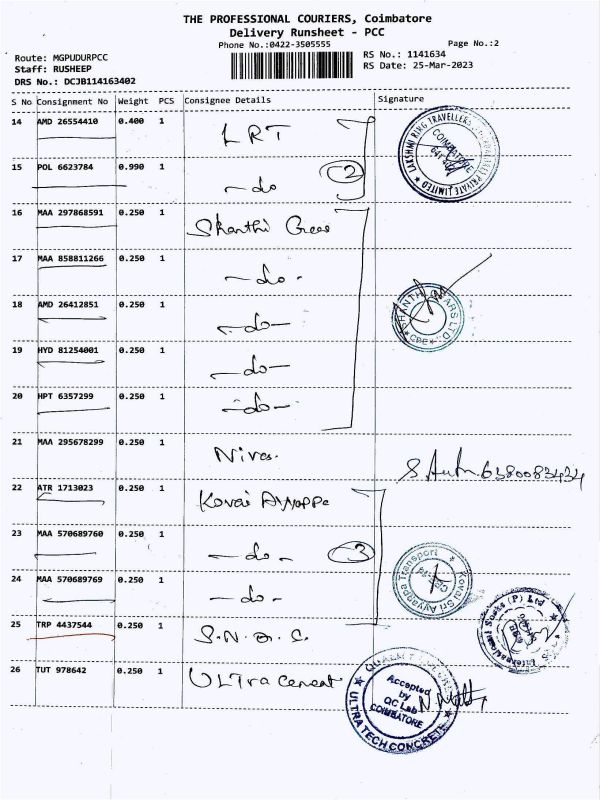 THE PROFESSIONAL COURIERS, Coimbatore
Delivery Runsheet - PCC
Phone No.:0422-3505555
Page No.:2
Route: MGPUDURPCC
RS No.: 1141634
Staff: RUSHEEP
RS Date: 25-Mar-2023
DRS No.: DCJB114163402
S No Consignment No Weight PCS Consignee Details Signature
14 AMD 26554410 0.400 1 LRT
15 POL 6623784 0.990 1 -do 2
16 MAA 297868591 0.250 1 Shanthi Gears
17 MAA 858811266 0.250 1 -do-
18 AMD 26412851 0.250 1 -do-
19 HYD 81254001 0.250 1 -do-
20 HPT 6357299 0.250 1 -do-
21 MAA 295678299 0.250 1 6380083434
22 ATR 1713023 0.250 1 Kovai Ayyappa
23 MAA 570689760 0.250 1 -do- 3
24 MAA 570689769 0.250 1 -do-
25 TRP 4437544 0.250 1 S.N.
26 TUT 978642 0.250 1 ULTra cement
LAKSHMI RING TRAVELLERS
PRIVATE LIMITED
COIMBATORE
GEARS LTD.
CBE
Kovai Sri Ayyappa Transport
(P) Ltd
Accepted
by
QC Lab
COIMBATORE
ULTRATECH CONCRETE